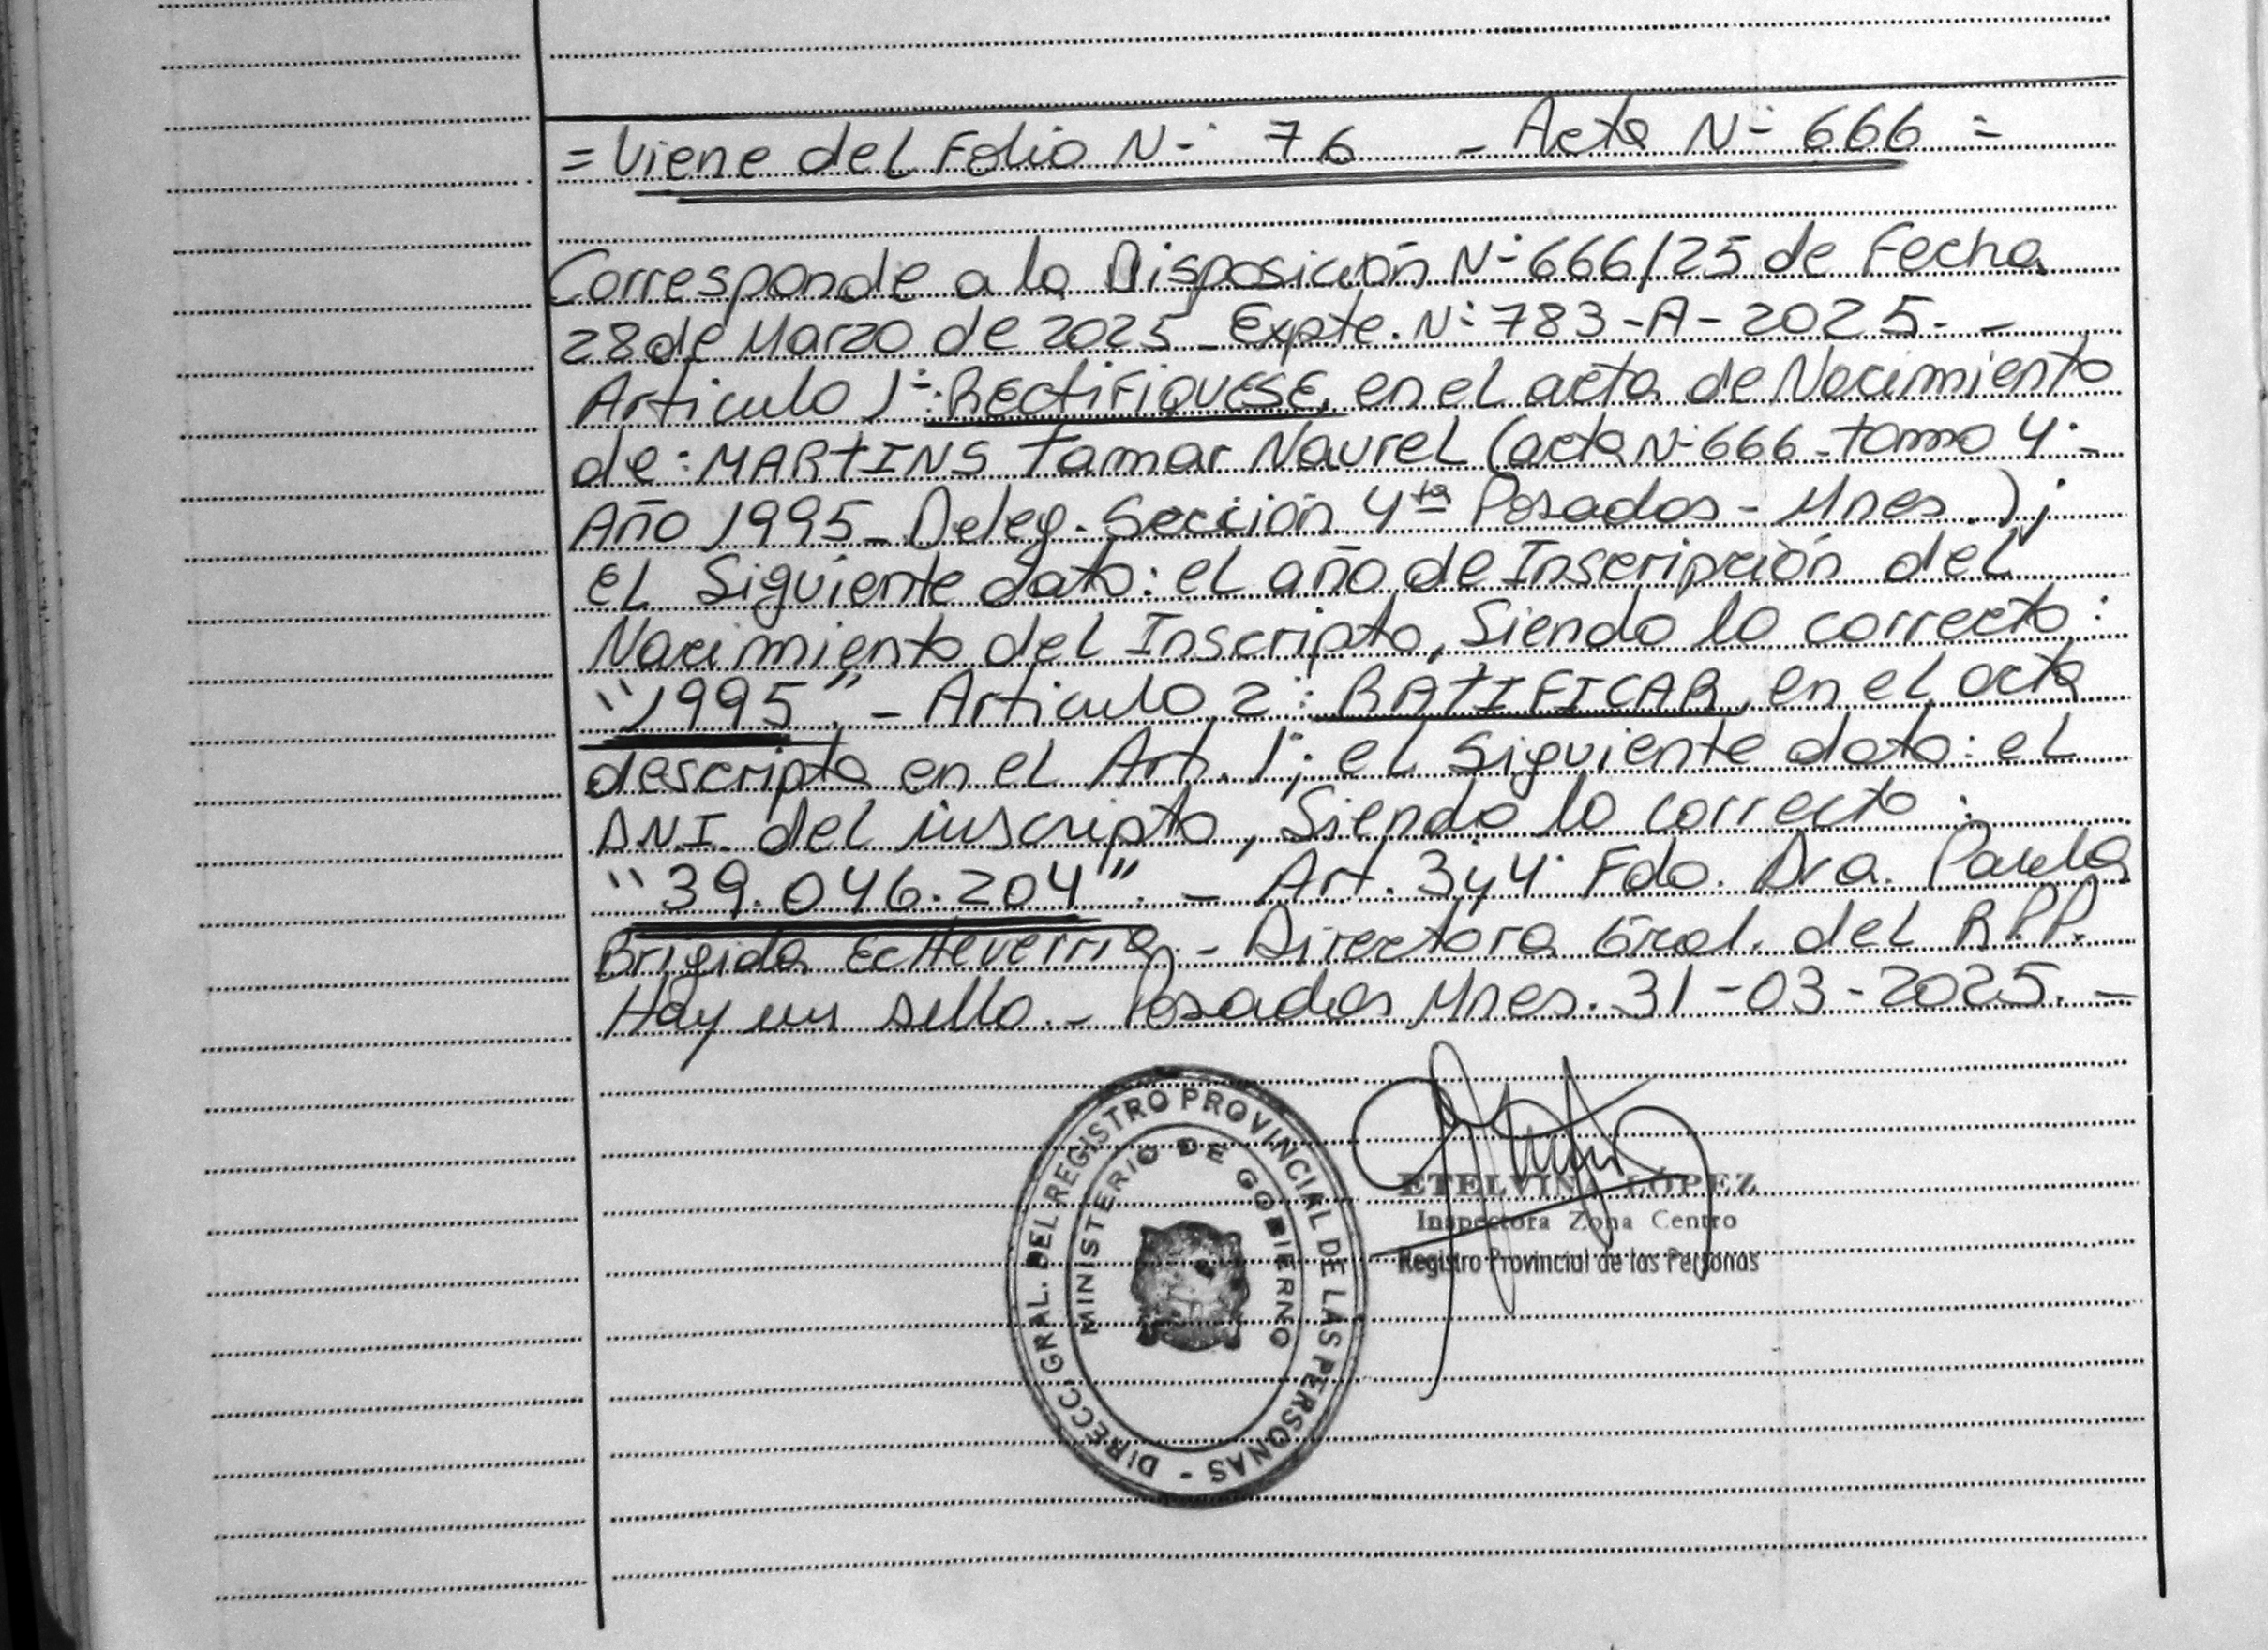 = Viene del Folio N° 76 - Acta N° 666 =
Corresponde a la Disposición N° 666/25 de Fecha
28 de Marzo de 2025 - Expte. N° 783-A-2025. -
Articulo 1°: RECTIFIQUESE, en el acta de Nacimiento
de: MARTINS Tamar Naurel (acta N° 666 - tomo 4° -
Año 1995 - Deleg. Sección 4ta Posadas - Mnes.);
el Siguiente dato: el año de Inscripción del
Nacimiento del Inscripto, Siendo lo correcto:
"1995". - Articulo 2°: RATIFICAR, en el acta
descripta en el Art. 1°; el Siguiente dato: el
D.N.I. del inscripto, Siendo lo correcto:
"39.046.204". - Art. 3y4° Fdo. Dra. Paula
Brigida Echeverria - Directora Gral. del R.P.P.
Hay un sello. - Posadas Mnes. 31-03-2025. -
DIRECC. GRAL. DEL REGISTRO PROVINCIAL DE LAS PERSONAS -
MINISTERIO DE GOBIERNO
ETELVINA LÓPEZ
Inspectora Zona Centro
Registro Provincial de las Personas